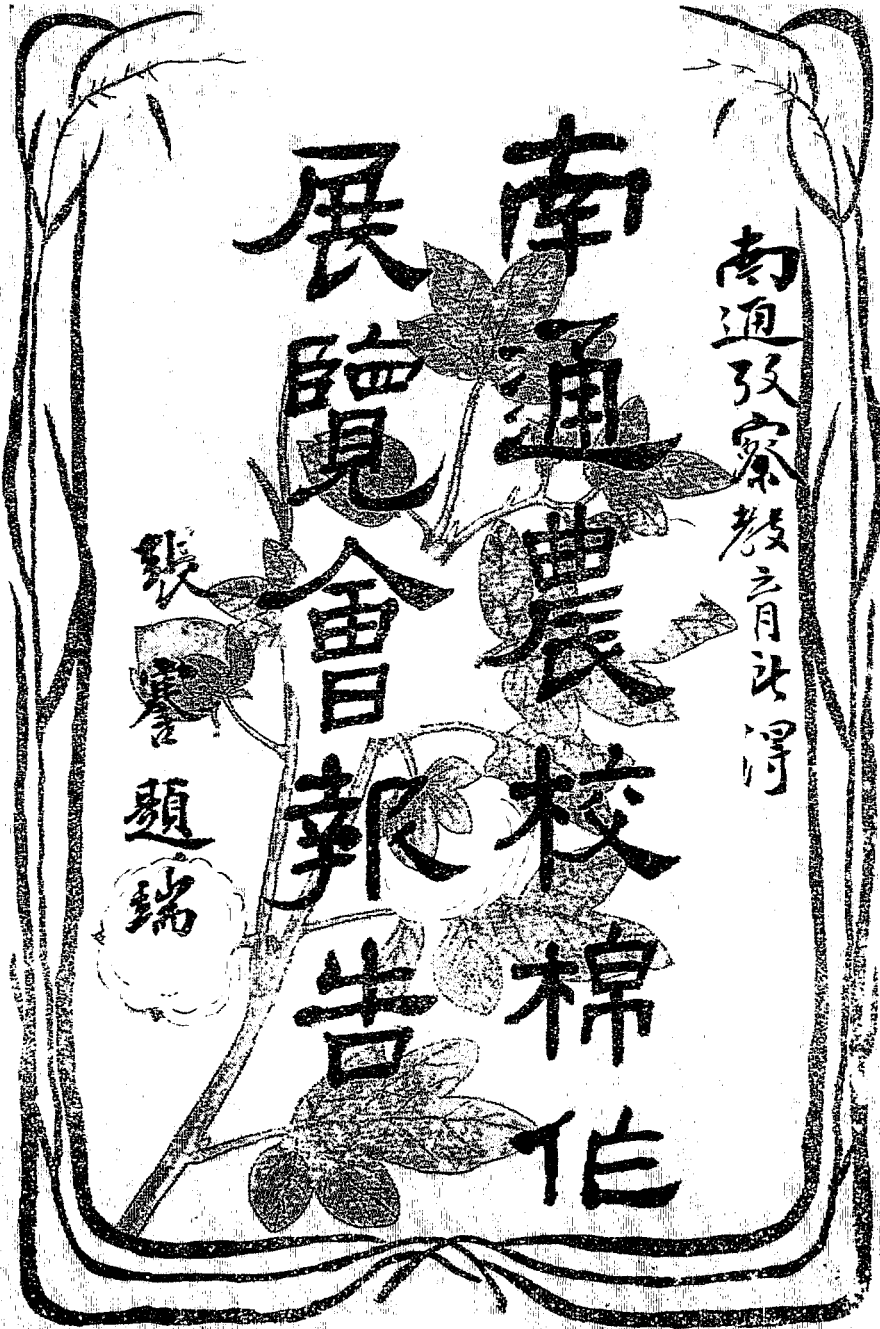 南通攷察教育所得
南通農校棉作
展覽會報告
張謇題耑